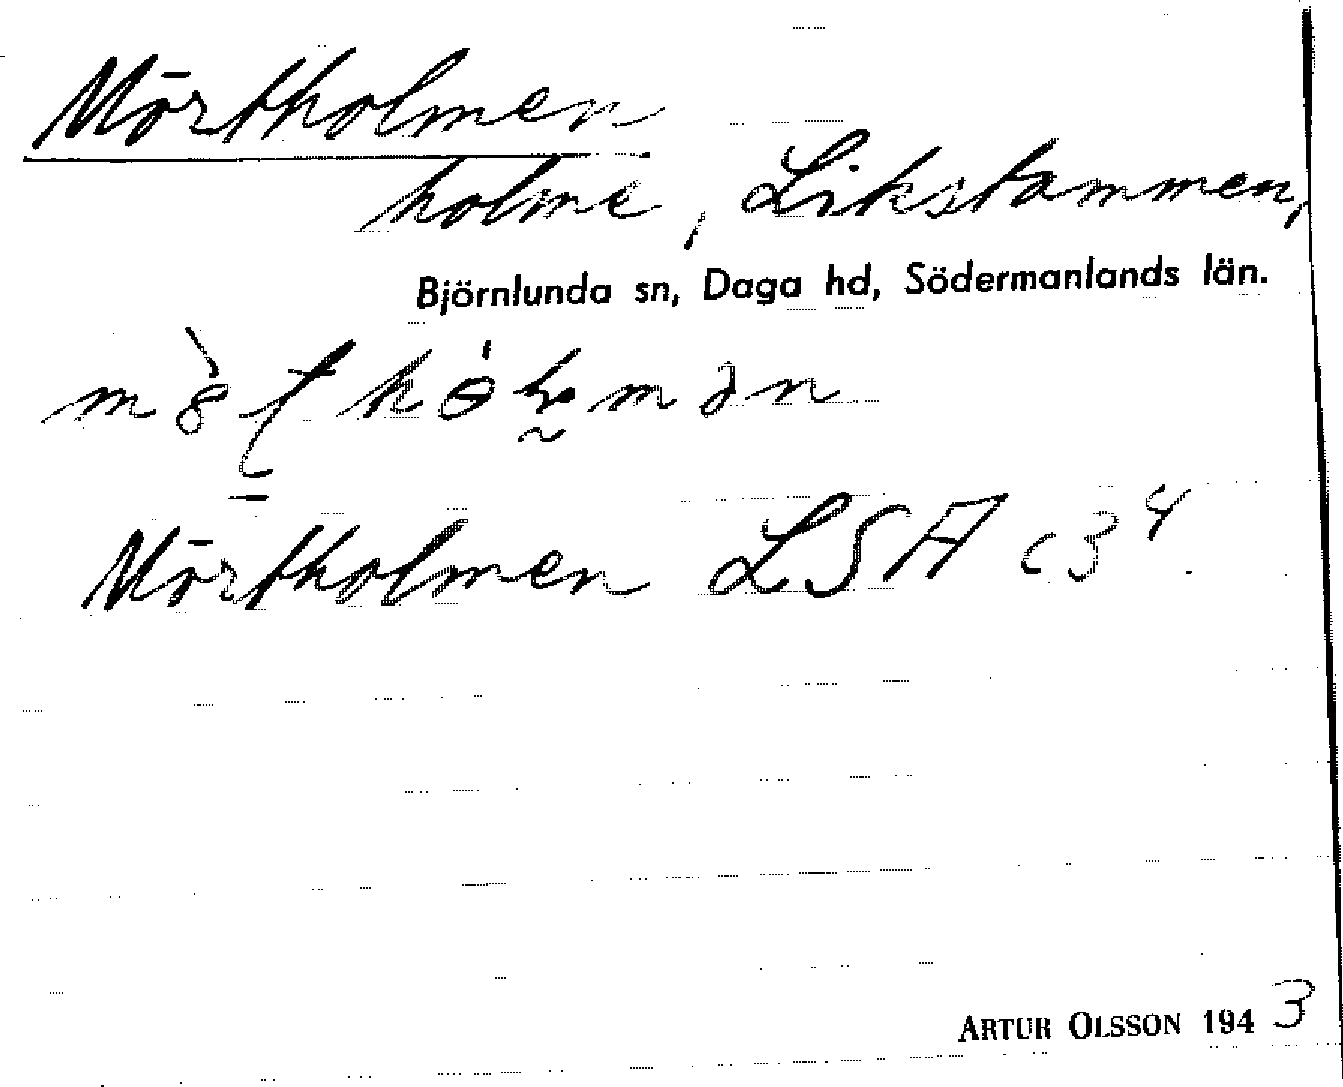 Mörtholmen
holme, Likstammen,
Björnlunda sn, Daga hd, Södermanlands län.
Mörtholmen LSA c3⁴
ARTUR OLSSON 1943